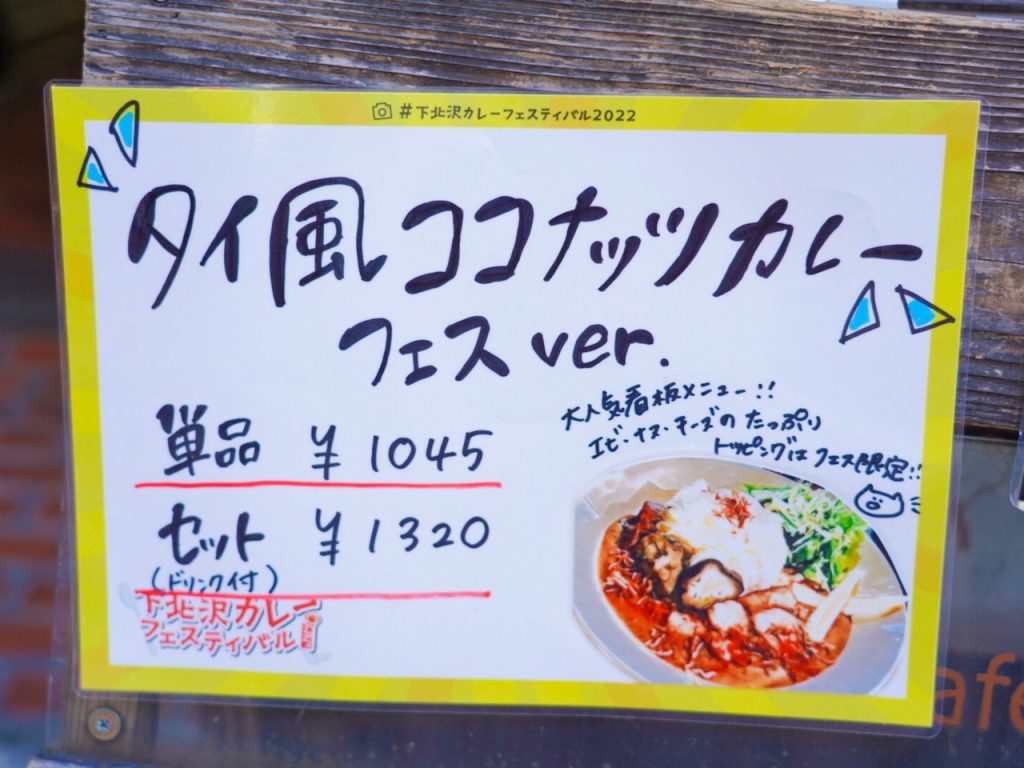 #下北沢カレーフェスティバル2022
タイ風ココナッツカレー
フェスver.
大人気看板メニュー!!
エビ・ナス・チーズの たっぷり
トッピングは フェス限定!!
単品 ¥1045
セット ¥1320
(ドリンク付)
下北沢カレー
フェスティバル
afe